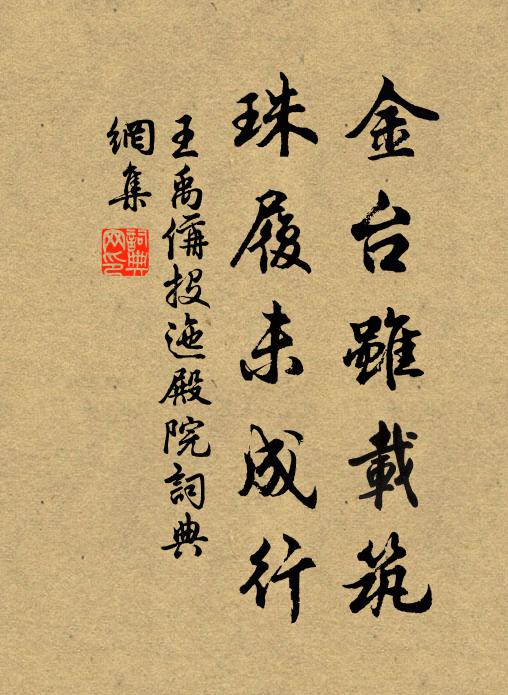 金台雖載筑
珠履未成行
王禹偁投迤殿院詞典
網集
詞典網印